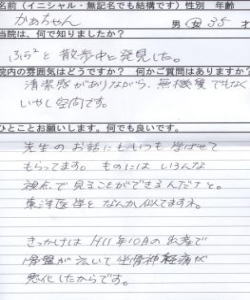 名前（イニシャル・無記名でも結構です）性別　年齢
かあちゃん　男・女 35才
当院は、何で知りましたか？
ふらっと散歩中に発見した。
院内の雰囲気はどうですか？　何かご質問はありますか？
清潔感がありながら、無機質でもなく
いやし空間です。
ひとことお願いします。何でも良いです。
先生のお話にもいつも学ばせて
もらってます。ものにはいろんな
視点で見ることができるんだナと。
東洋医学となんか似てますネ。
きっかけはH11年10月の出産で
骨盤が歪いて坐骨神経痛が
悪化したからです。